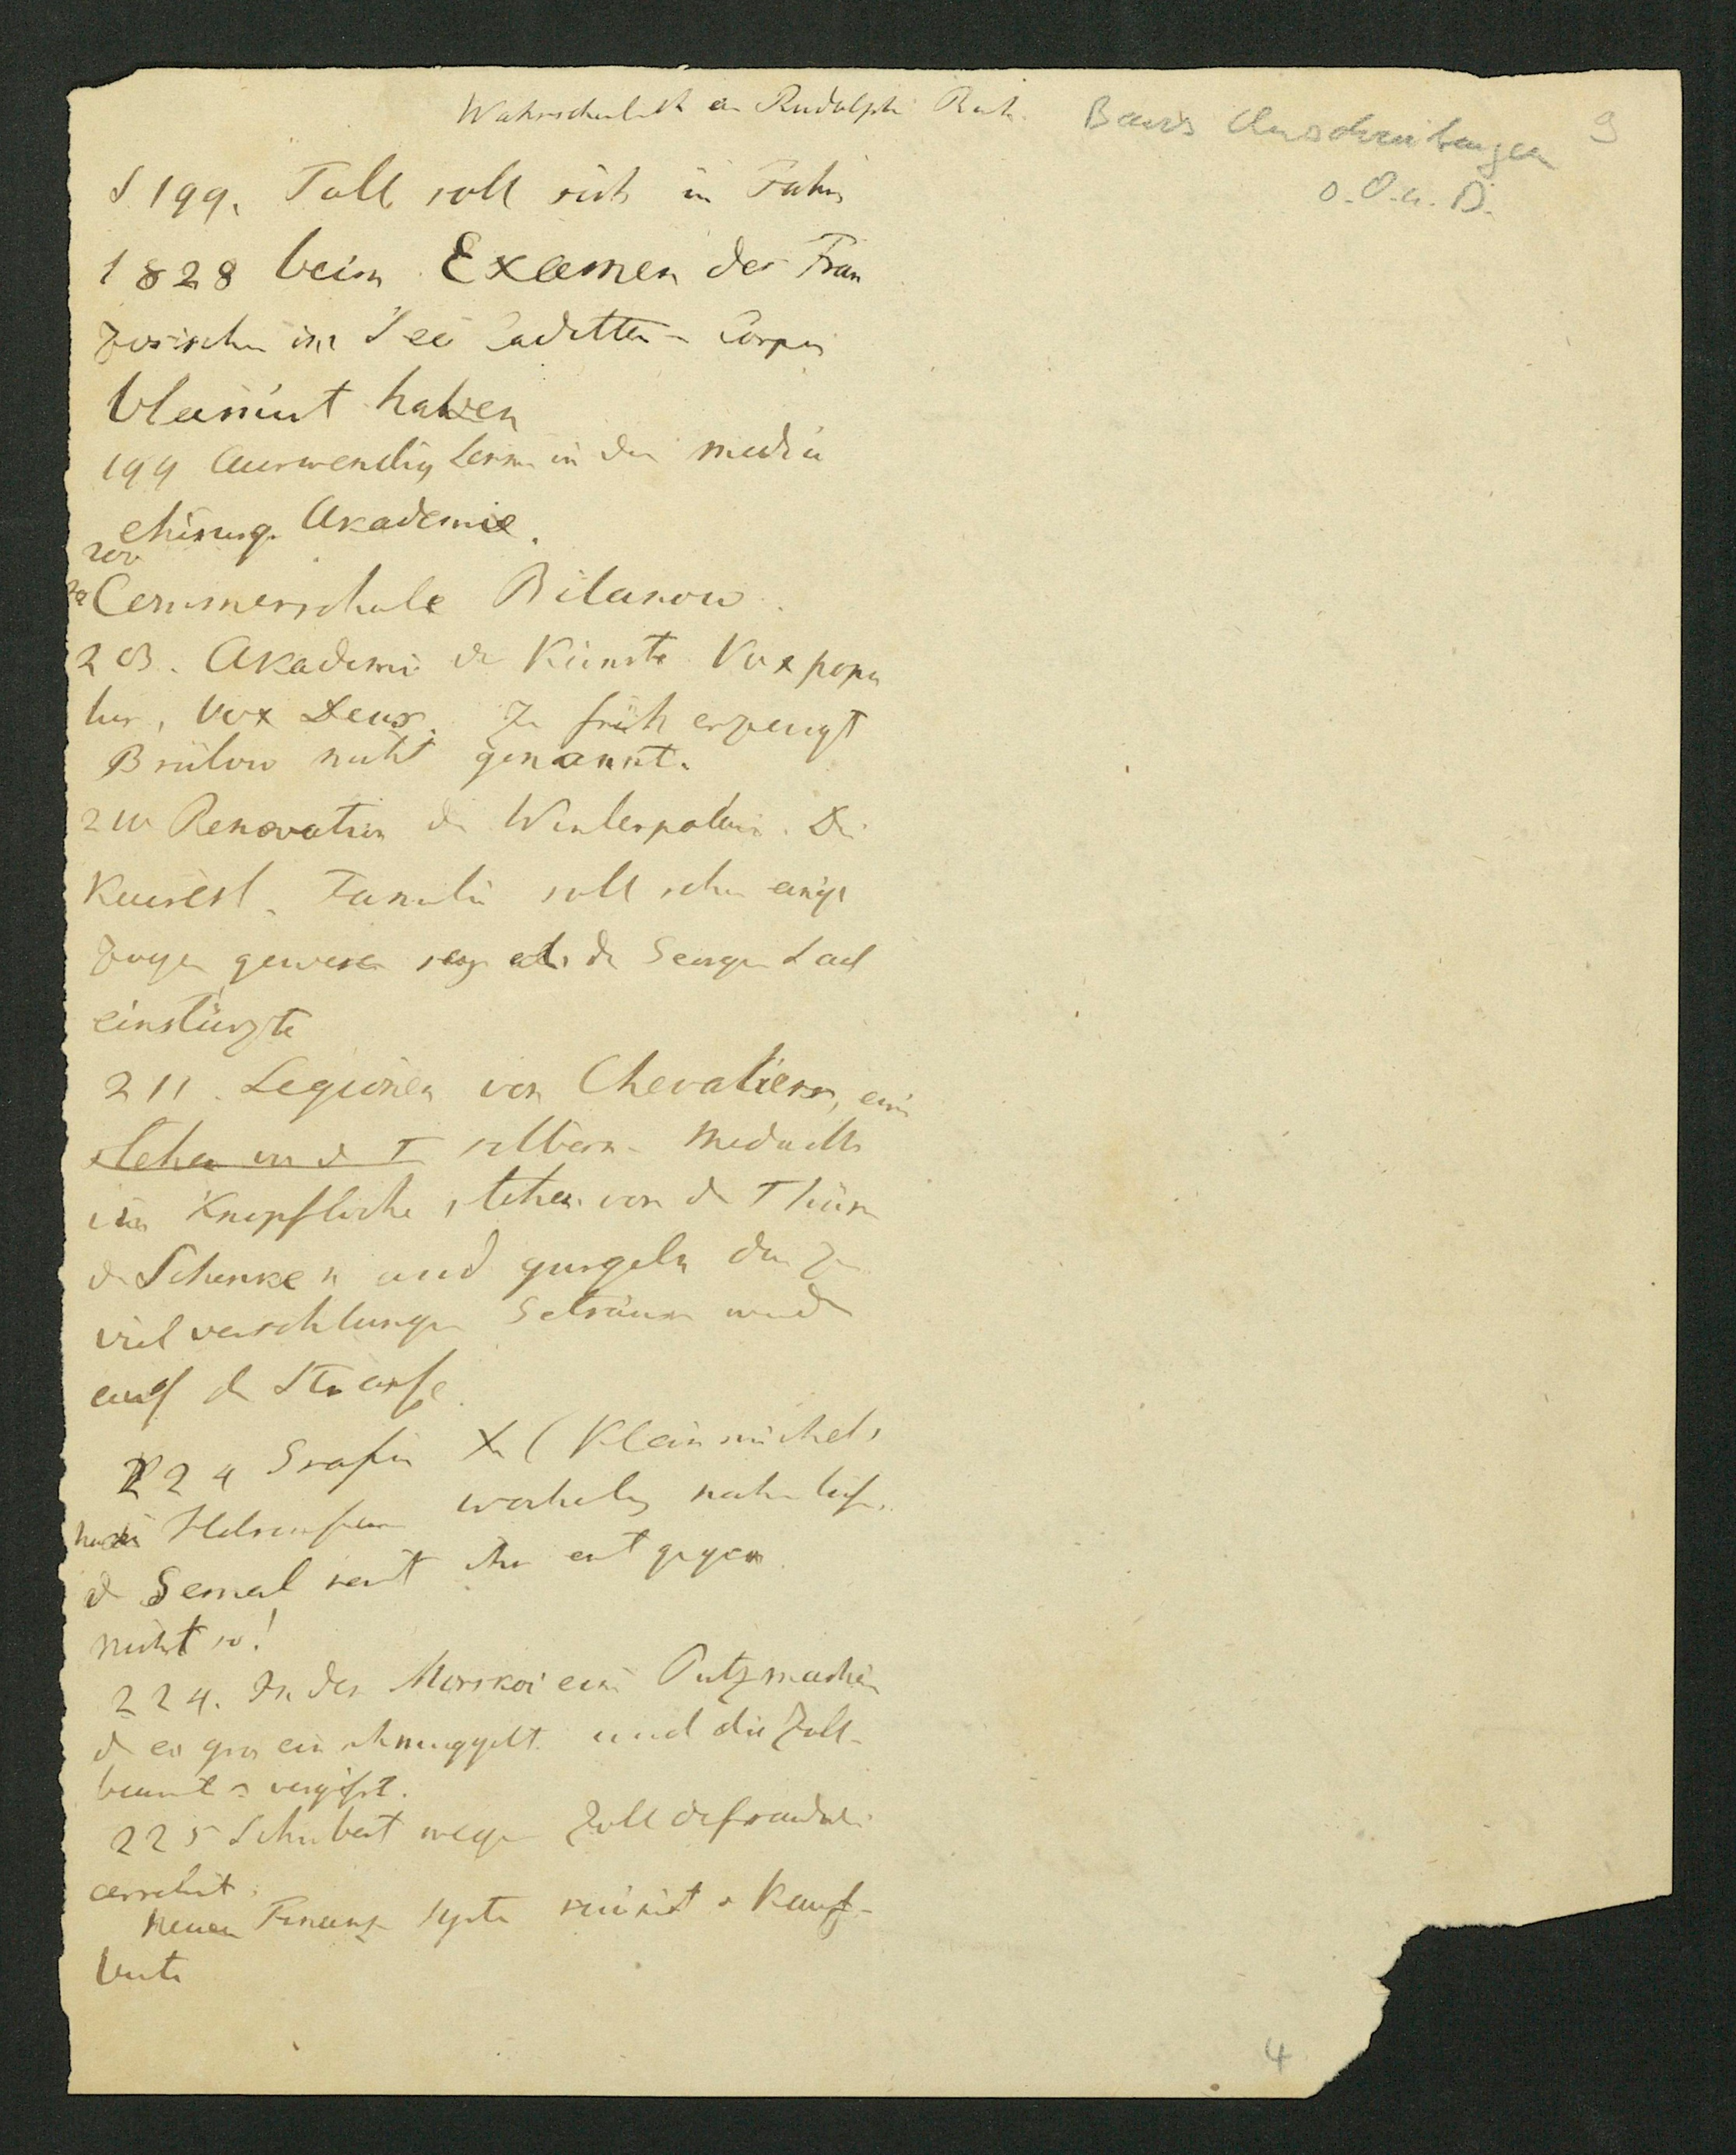 Wahrscheinlich an Rudolph
Baers Anschreibungen 9
o. O. u. D.
S 199. Toll soll sich im Jahr
1828 beim Examen des Fran
zösischen im See Cadetten-Corps
blamirt haben
199 Auswendig Lernen in der medic
chirurg. Akademie.
200
Commerschule
203. Akademie der Künste Vox popu
lus, Vox Deus. Zu früh erzeugt
Brülow nicht genannt.
210 Renovation des Winterpalais. Die
Kaiserl. Familie soll schon einige
gewesen seyn als der Georgen Saal
einstürzte
211. Legionen von Chevaliers, eine
stehen vor d T silberne Medaille
im Knopfloche, stehen vor den Thüren
der Schenken und gurgeln das zu
viel verschlungene Getränk wieder
auf die Straße
224 Gräfin X (Kleinmichel)
der Gemal ihr entgegen
nicht so!
224. In der Morskoi eine Putzmacherin
d en gros einschmuggelt und die Zoll-
beamten vergiftet.
225 Schubert wegen Zolldefraudation
arretirt.
Neues Finanz System ruinirt d Kauf-
leute
4